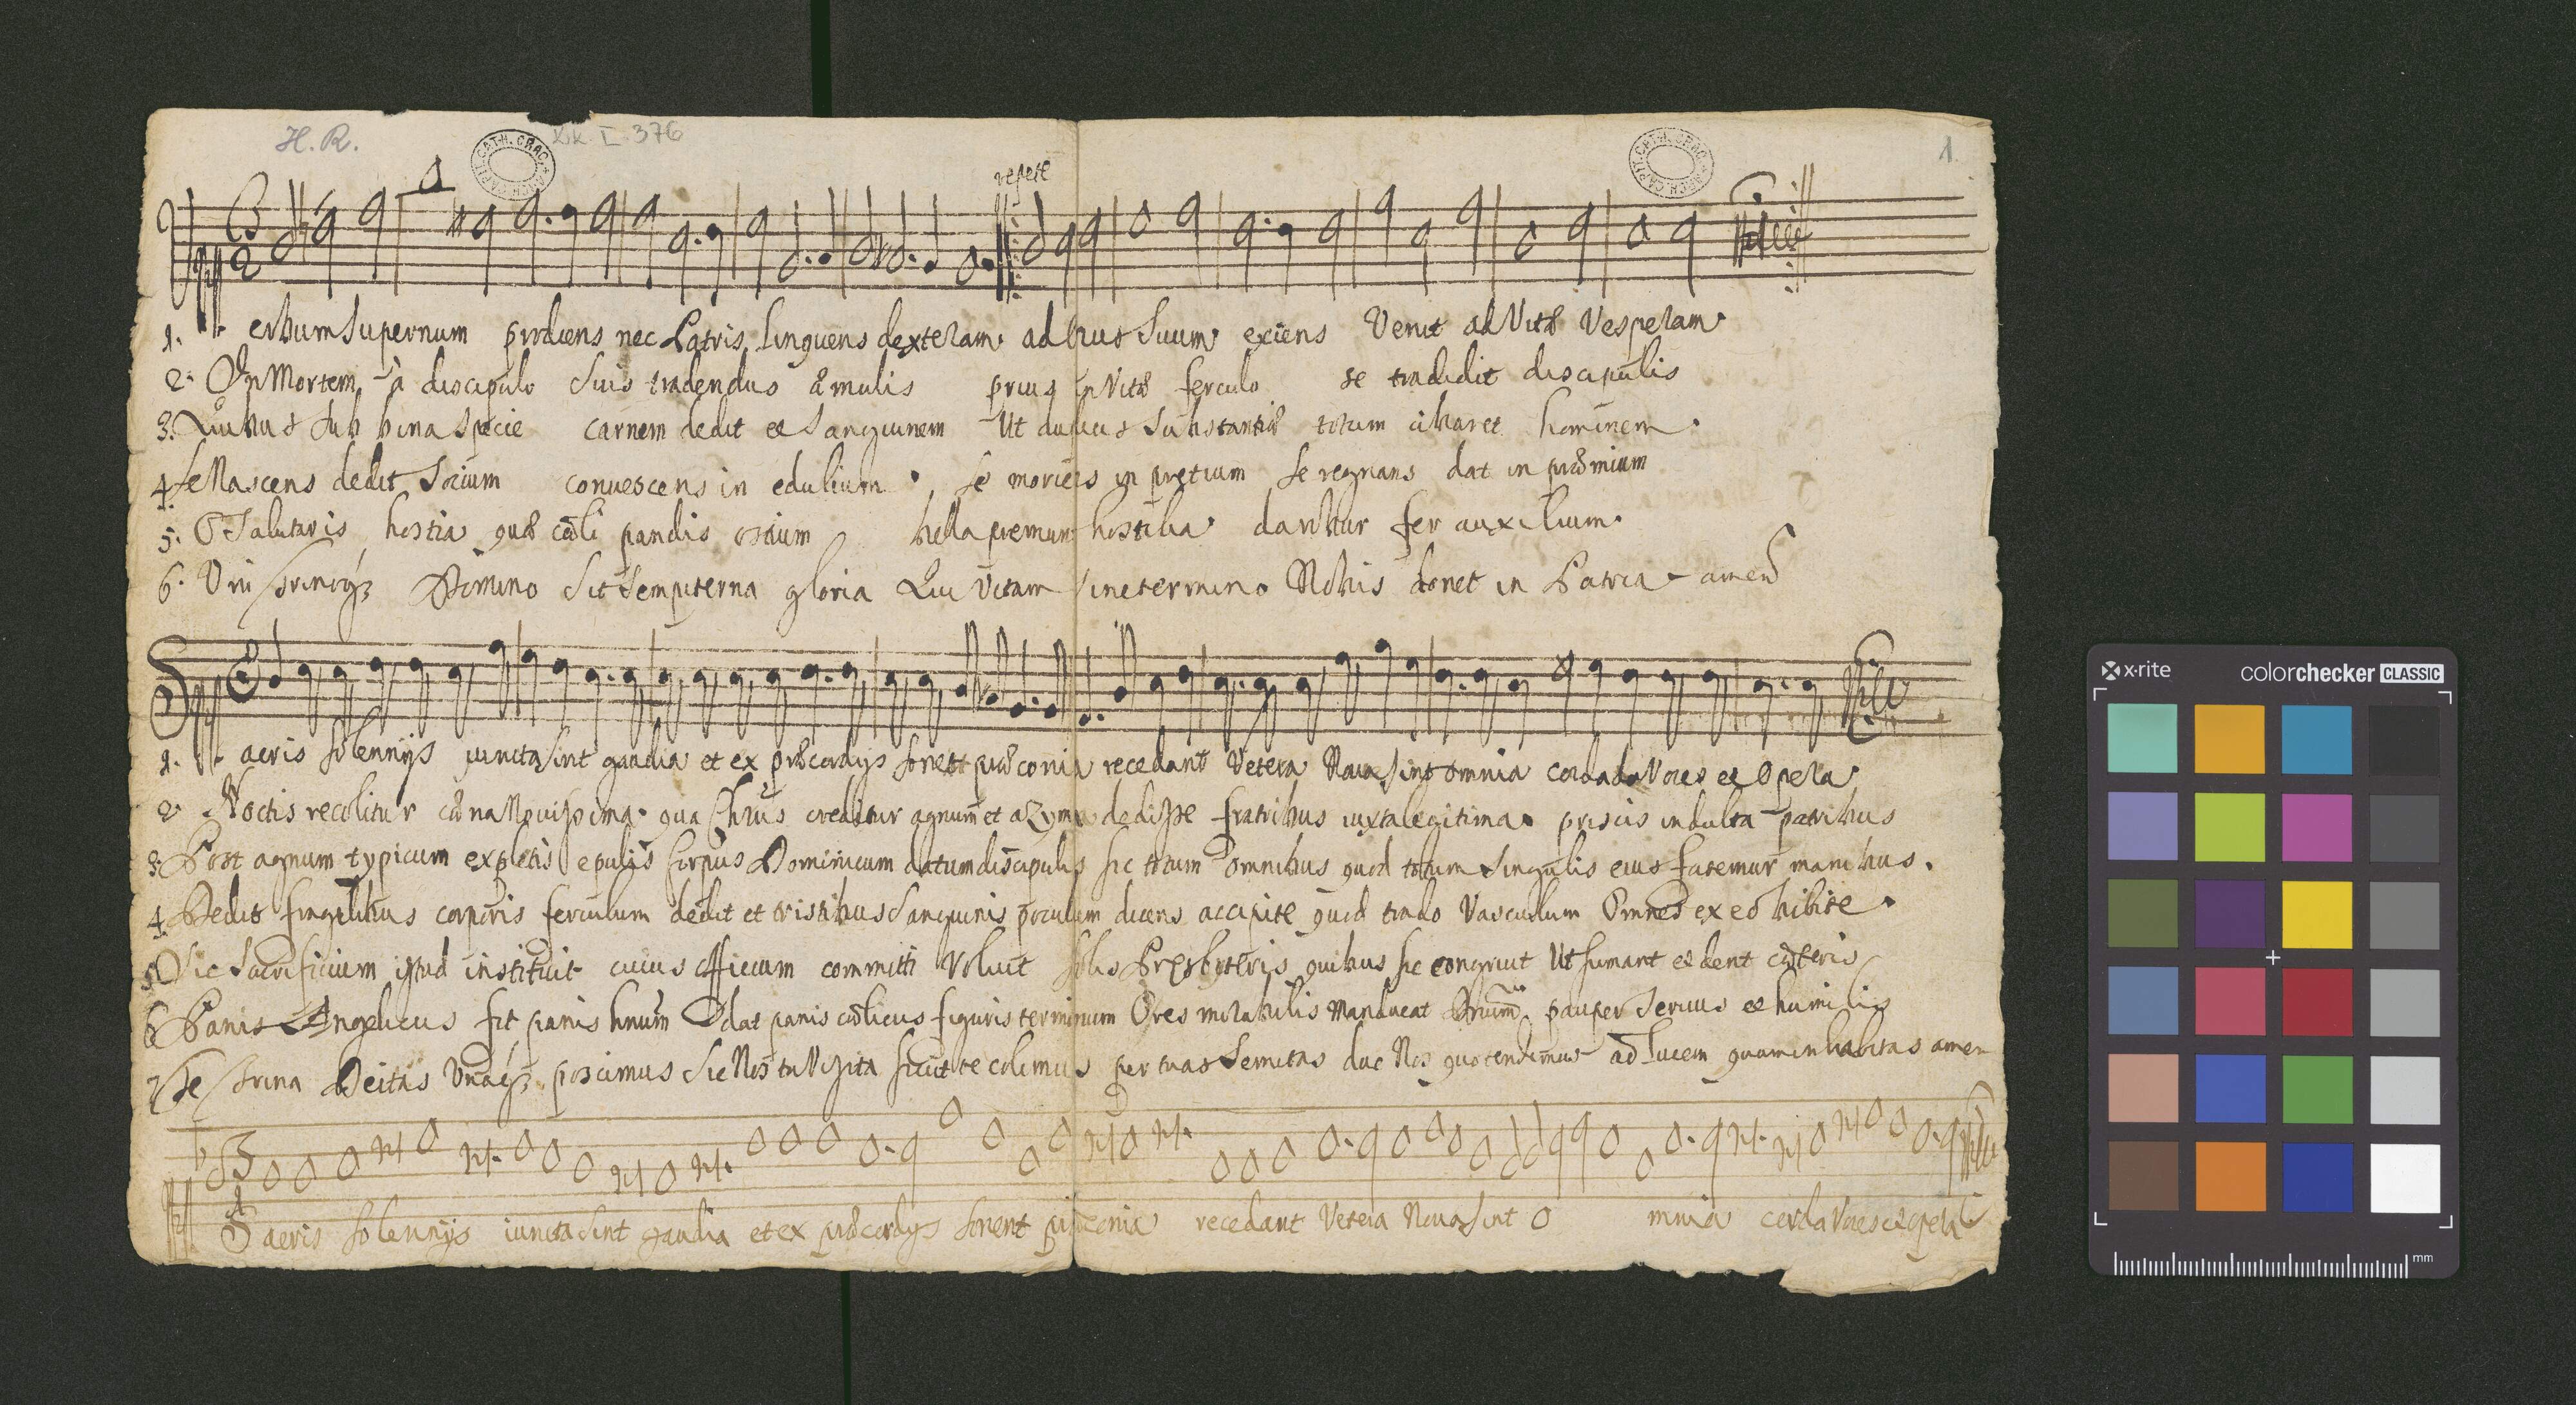 H. R.
Kk. I. 376
1.
ARCH. CAPIT. CATH. CRAC.
ARCH. CAPIT. CATH. CRAC.
repete
1. erbum Supernum prodiens nec Patris linquens dexteram ad opus Suum exiens Venit ad Vitæ Vesperam
2. In Mortem à discipulo Suis tradendus æmulis prius in Vitæ ferculo se tradidit discipulis
3. Quibus Sub bina Specie carnem dedit et Sanguinem Ut duplicis Substantiæ totum cibaret hominem.
4. Se Nascens dedit Socium convescens in edulium. Se moriens in pretium Se regnans dat in præmium
5. O Salutaris hostia quæ cœli pandis ostium bella premunt hostilia da robur fer auxilium.
6. Uni Trinoq3 Domino Sit Sempiterna gloria Qui Vitam Sine termino Nobis donet in Patria amen
1. acris Solennijs juncta Sint gaudia et ex præcordijs Sonent præconia recedant Vetera Nova Sint omnia corda Voces et Opera.
2. Noctis recolitur cœna Novissima. qua Chrūs creditur agnum et azyma dedisse fratribus iuxta legitima priscis indulta patribus
3. Post agnum typicum expletis epulis Corpus Dominicum datum discipulis Sic totum omnibus quod totum Singulis eius fatemur manibus.
4. Dedit fragilibus corporis ferculum dedit et tristibus Sanguinis poculum dicens accipite quod trado Vasculum Omnes ex eo bibite.
5. Sic Sacrificium istud instituit cuius officium committi Voluit Solis Presbyteris quibus Sic congruit Ut Sumant et dent cæteris
6. Panis Angelicus fit panis hnum dat panis cœlicus figuris terminum O res mirabilis Manducat Dnum pauper Servus et humilis
7. Te Trina Deitas Unaq3 poscimus Sic Nos tu Visita Sicut te colimus per tuas Semitas duc Nos quo tendimus ad lucem quam inhabitas amen
S acris Solennijs iuncta Sint gaudia et ex præcordijs Sonent præconia recedant Vetera Nova Sint o mnia corda Voces et opera
x·rite
colorchecker CLASSIC
mm